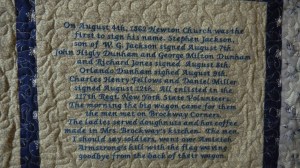 On August 4th, 1862 Newton Church was the
first to sign his name. Stephen Jackson,
son of W. G. Jackson signed August 7th.
John Higly Dunham and George Milton Dunham
and Richard Jones signed August 8th.
Orlando Dunham signed August 9th.
Charles Henry Fellows and Daniel Miller
signed August 22th. All enlisted in the
117th Regt. New York State Volunteers
The morning the big wagon came for them
the men met on Brockway Corners.
The ladies served doughnuts and hot coffee
made in Mrs. Brockway's kitchen. The men,
I should say soldiers, went over
Armstrong hill with the flag
goodbye from the back of their wagon.